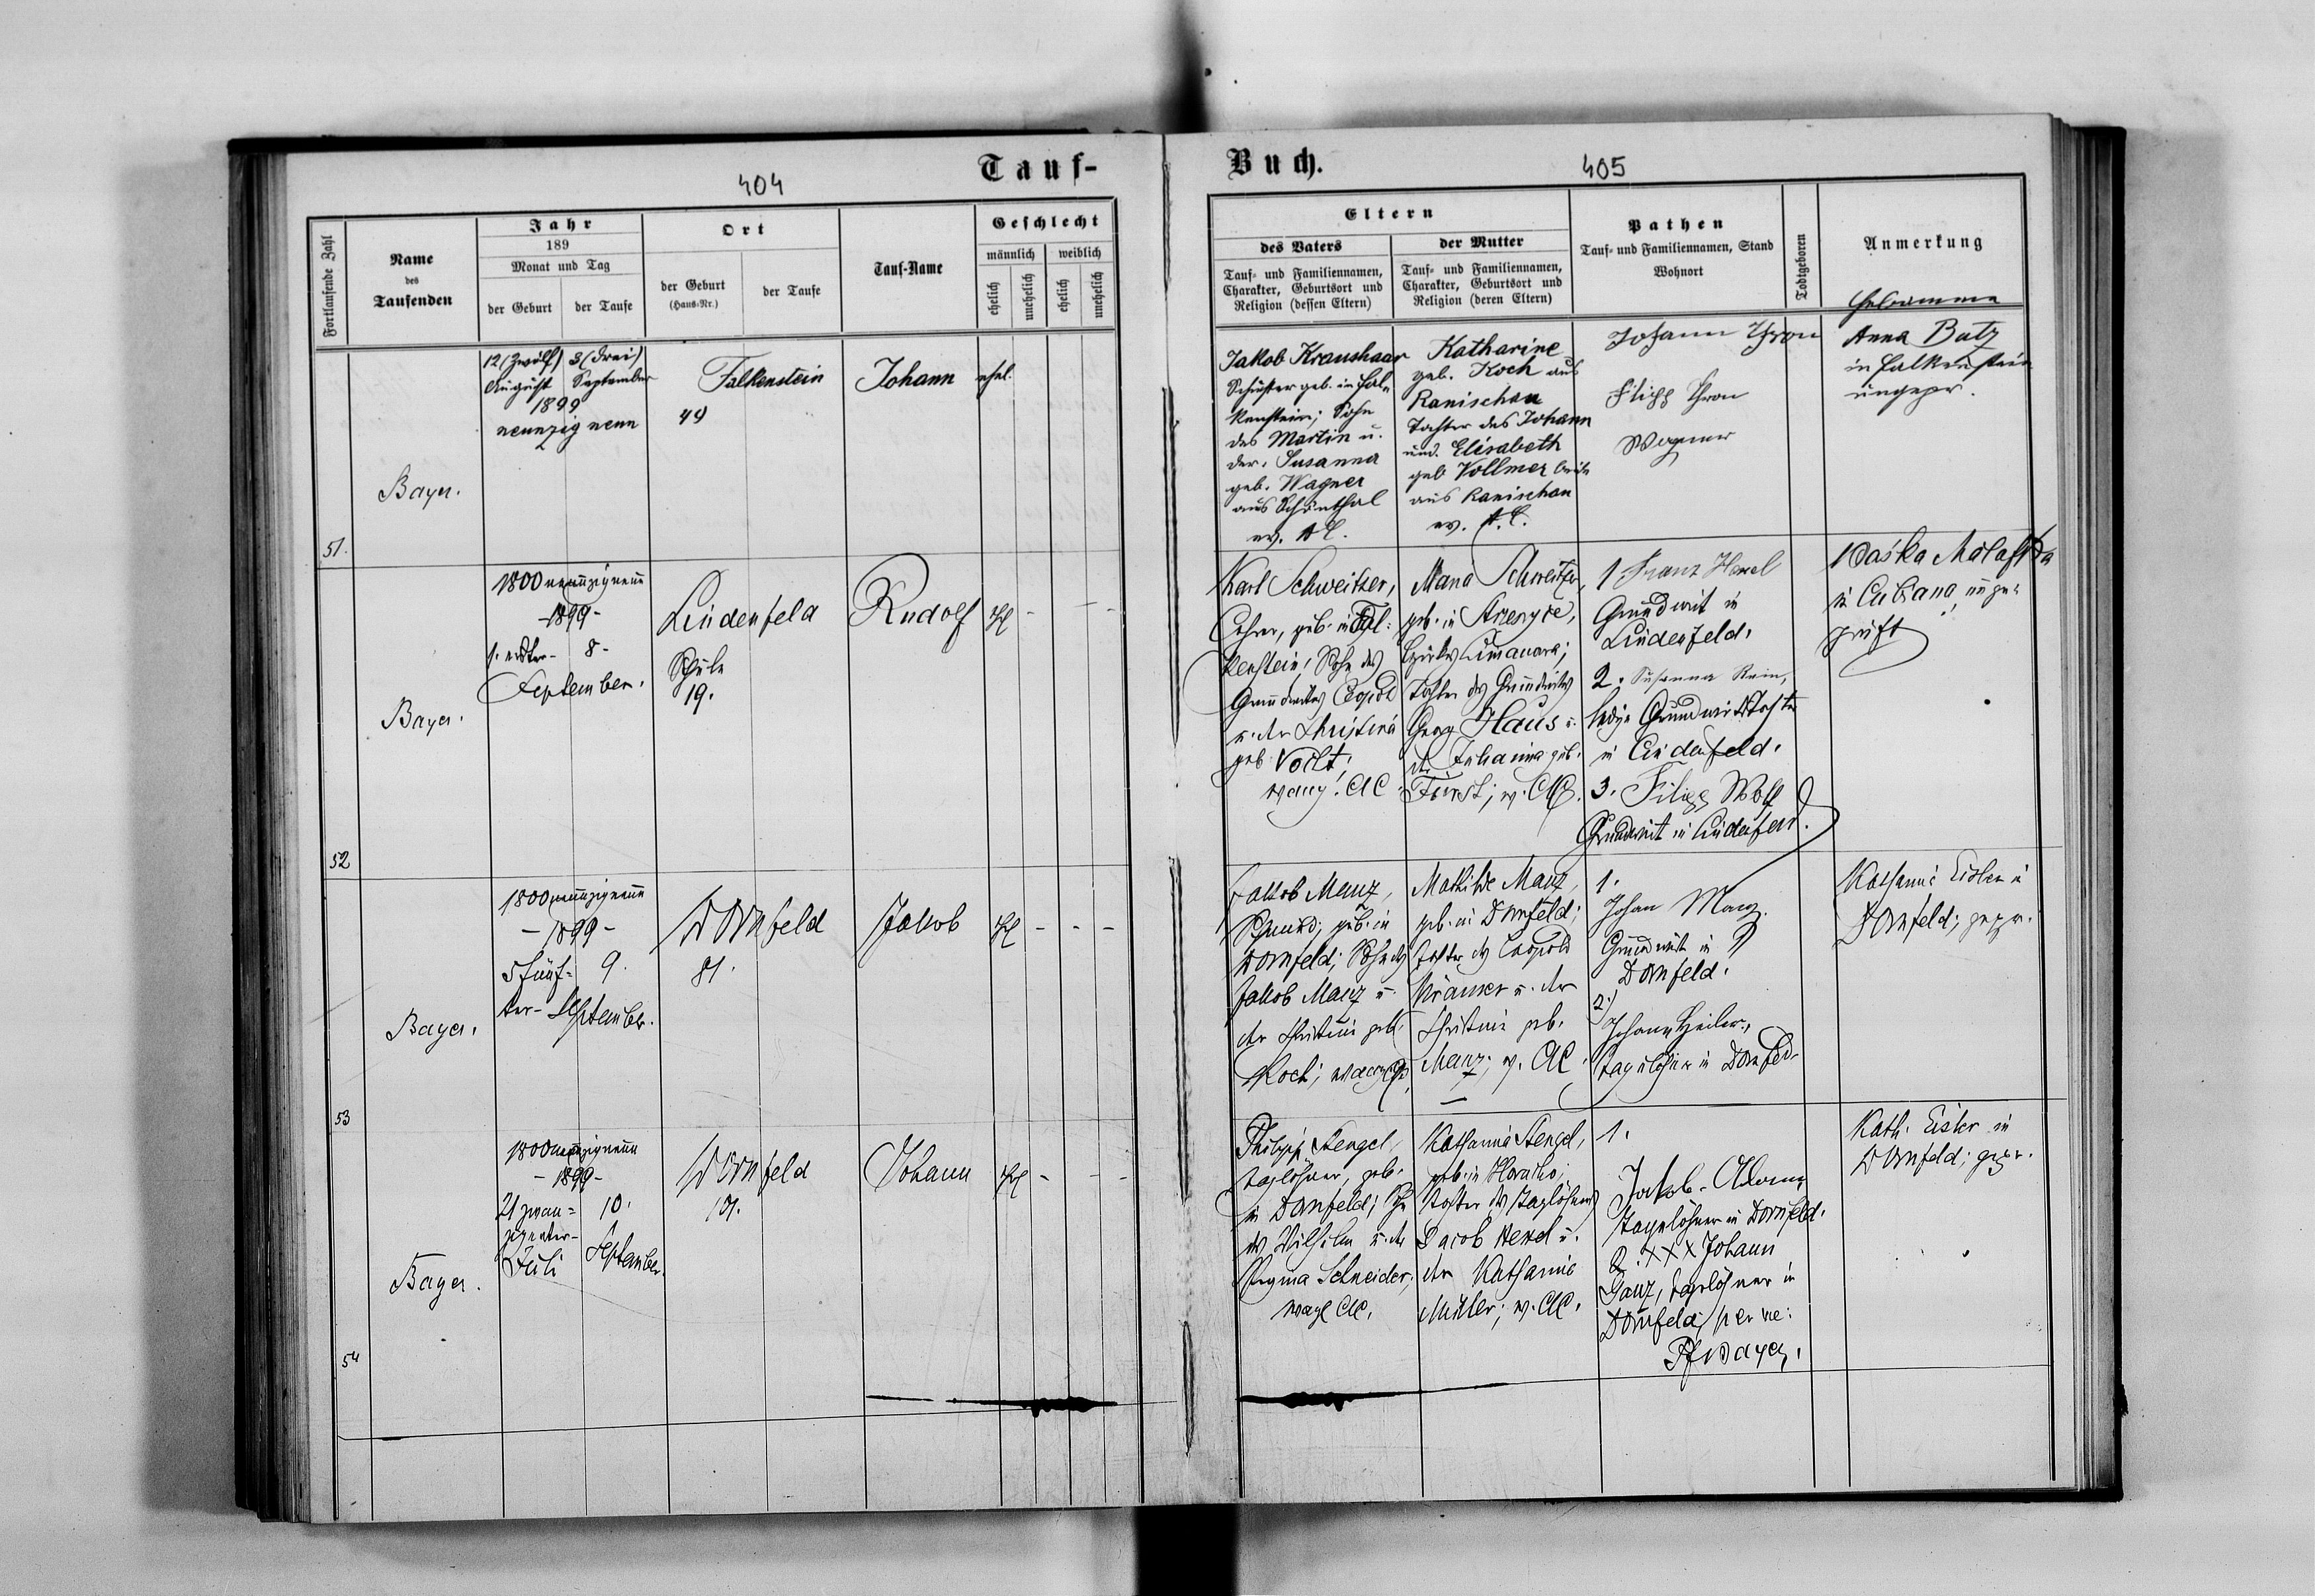 404
Tauf-
Fortlaufende Zahl
Name
des
Taufenden
Jahr
189
Monat und Tag
der Geburt
der Taufe
Ort
der Geburt
(Haus-Nr.)
der Taufe
Tauf-Name
Geschlecht
männlich
weiblich
ehelich
unehelich
ehelich
unehelich
51.
Bayer.
12 (zwölf) 3 (drei)
August September
1899
neunzig neun
Falkenstein
49
Johann
ehel.
52
Bayer.
1800 neunzigneun
-1899-
1. erster- 8-
September.
Lindenfeld
Schule
19.
Rudolf
53
Bayer.
1800 neunzigneun
-1899-
5 fünf- 9.
ter- September.
Dornfeld
81.
Jakob
54
Bayer.
1800 neunzigneun
-1899-
21 zwan- 10.
zigster-
Juli September.
Dornfeld
Johann
Buch.
405
Eltern
des Vaters
Tauf- und Familiennamen,
Charakter, Geburtsort und
Religion (dessen Eltern)
der Mutter
Tauf- und Familiennamen,
Charakter, Geburtsort und
Religion (deren Eltern)
Pathen
Tauf- und Familiennamen, Stand
Wohnort
Todtgeboren
Anmerkung
Hebamme
Jakob Kraushaar
Schuster geb. in Fal-
kenstein; Sohn
des Martin u.
der Susanna
geb. Wagner
aus Schönthal
ev. A C.
Katharine
geb. Koch aus
Ranischau
Tochter des Johann
und Elisabeth
geb Vollmer
aus Ranischau
ev. A. C.
Johann Thron
Filipp Thron
Wagner
Anna Butz
in Falkenstein
ungepr.
Karl Schweitzer,
Lehrer, geb. in Fal-
kenstein; Sohn des
Grundwirtes Leopold
u. der Christina
geb.
evang. AC
Maria Schweitzer,
geb. in
Bezirkes Limanowa;
Tochter des Grundwirtes
Georg Haus u.
der Johanna geb.
Fürst; ev. AC.
1
Grundwirt in
Lindenfeld.
2. Susanna Rein,
ledige Grundwirtstochter
in Lindenfeld.
3. Filipp Wolf
Grundwirt in Lindenfeld.
in Lubiana, unge-
prüft
Jakob Manz,
Schmied; geb. in
Dornfeld; Sohn des
Jakob Manz u.
der Christine geb.
Koch; evang.
Mathilde Manz,
geb. in Dornfeld;
Tochter des Leopold
Krämer u. der
Christine geb.
Manz; ev. AC.
1.
Johan Manz.
Grundwirt in
Dornfeld.
2.)
Taglöhner in Dornfeld
Katharine Eisler in
Dornfeld; gepr.
Philipp Stengel,
Taglöhner, geb.
in Dornfeld; Sohn
des Wilhelm u. der
Regina Schneider;
evang AC.
Katharina Stengel,
geb. in
Tochter des Taglöhners
Jacob u.
der Katharine
Müller; ev. AC.
1.
Jakob Adam,
Tagelöhner in Dornfeld.
2. XXX Johann
Ganz, Taglöhner in
Dornfeld; per me:
Pf Bayer.
Kath. Eisler in
Dornfeld; gepr.